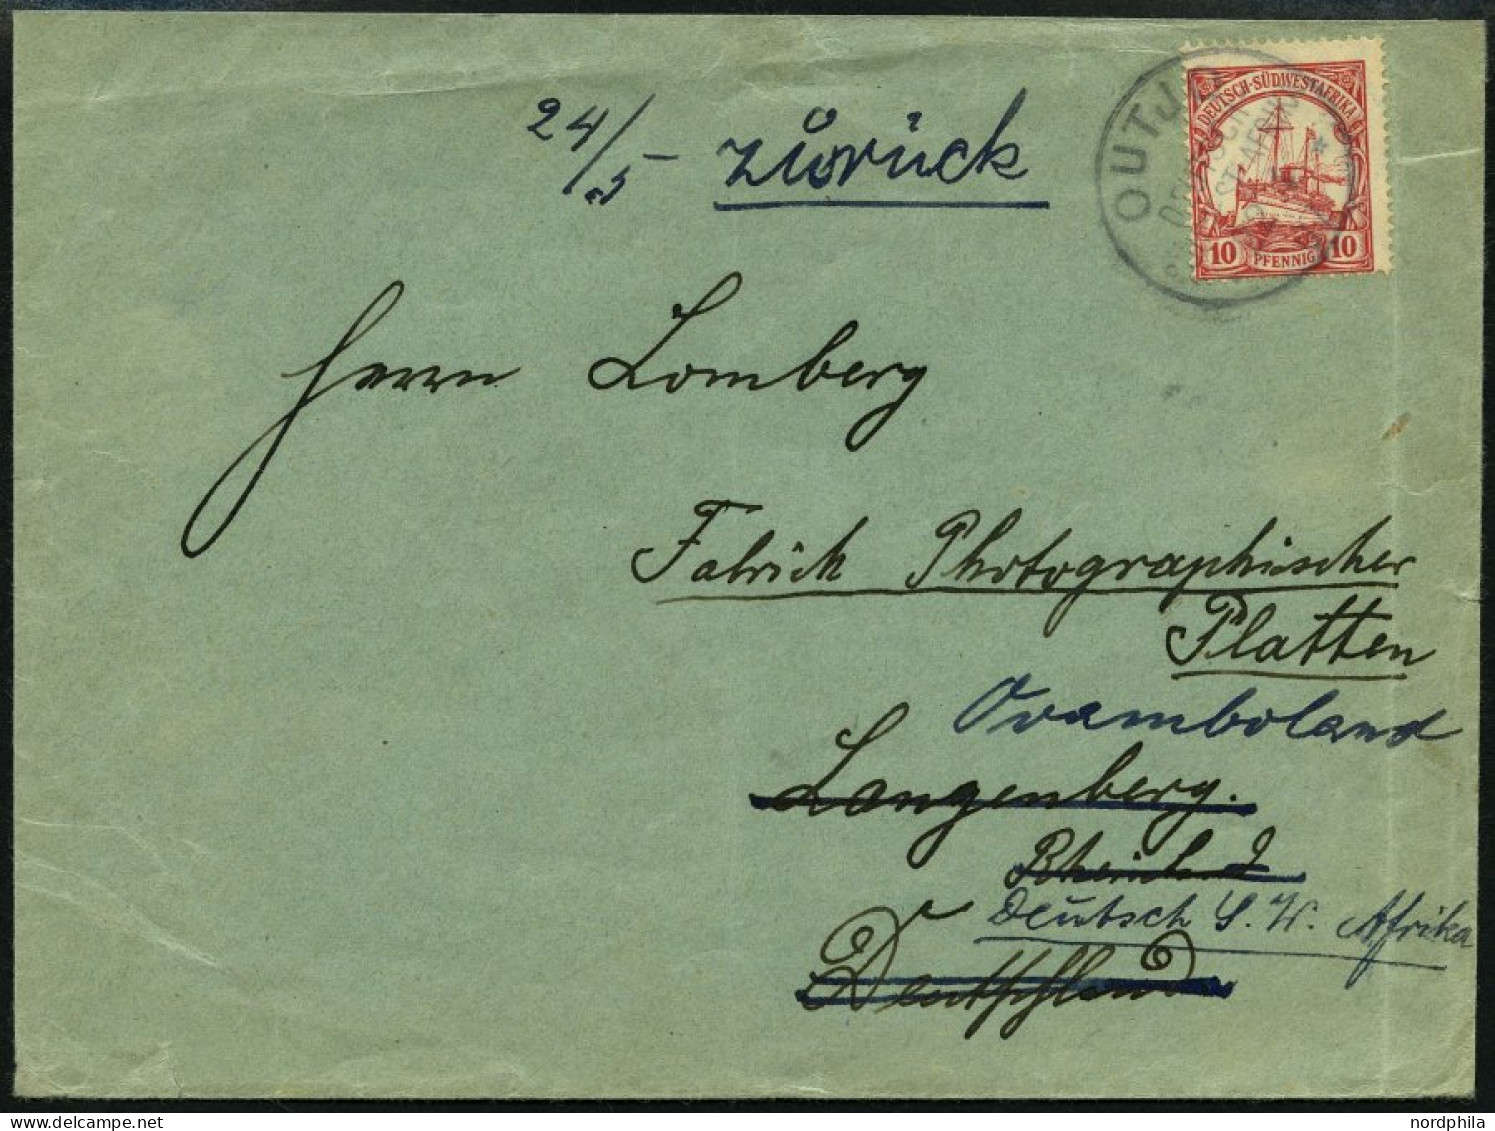 24/5 zurück
OUTJO
DEUTSCH-SÜDWESTAFRIKA
10 PFENNIG 10
Herrn Lomberg
Fabrick Photographischer
Platten
Ovamboland
Langenberg.
Rheinland
Deutsch S. W. Afrika
Deutschland
nordphila